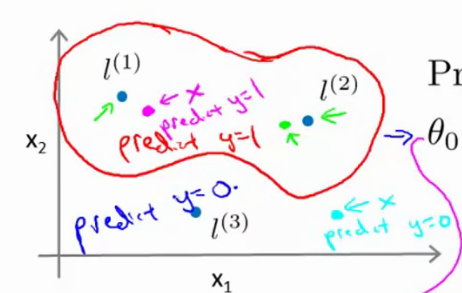 l^{(1)}
Pr
x
predict y=1
l^{(2)}
predict y=1
θ_0
x_2
predict y=0.
l^{(3)}
x
predict y=0
x_1